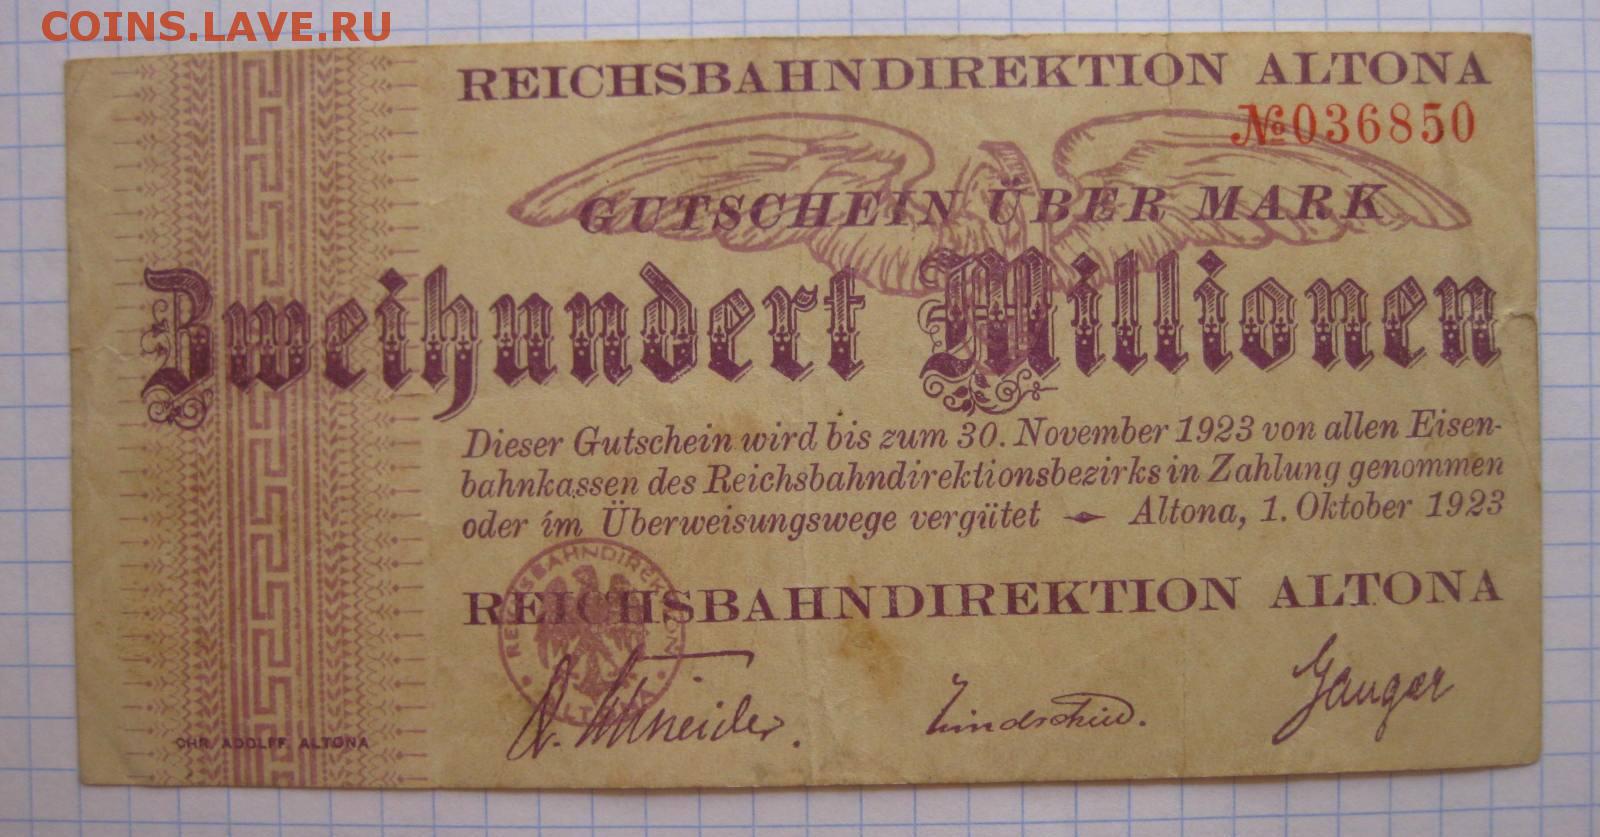 COINS.LAVE.RU
REICHSBAHNDIREKTION ALTONA
№036850
GUTSCHEIN ÜBER MARK
Zweihundert Millionen
Dieser Gutschein wird bis zum 30. November 1923 von allen Eisen-
bahnkassen des Reichsbahndirektionsbezirks in Zahlung genommen
oder im Überweisungswege vergütet Altona, 1. Oktober 1923
REICHSBAHNDIREKTION ALTONA
REICHSBAHNDIREKTION
ALTONA
Schneider.
CHR. ADOLFF, ALTONA